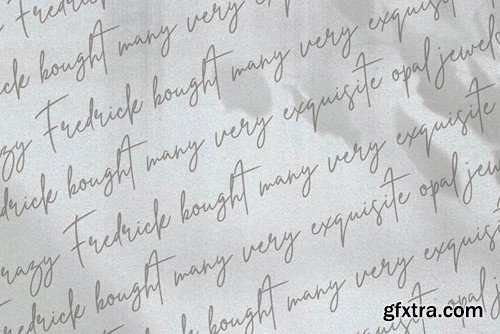 ick bought many very
zy Fredrick bought many very exquisite
drick bought many very exquisite opal jewels
razy Fredrick bought many very exquisite
Fredrick bought many very exquisite opal jew
razy Fredrick bought many very exquisite
exquisite opal
gfxtra.com